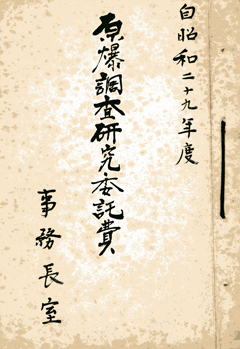 自昭和二十九年度
原爆調査研究委託費
事務長室